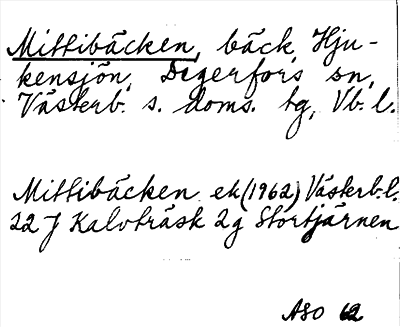 Mittibäcken, bäck, Hju-
kensjön, Degerfors sn,
Västerb. s. doms. tg, Vb. l.
Mittibäcken ek (1962) Västerb. l.
22 J Kalvträsk 2g Stortjärnen
ASO 62